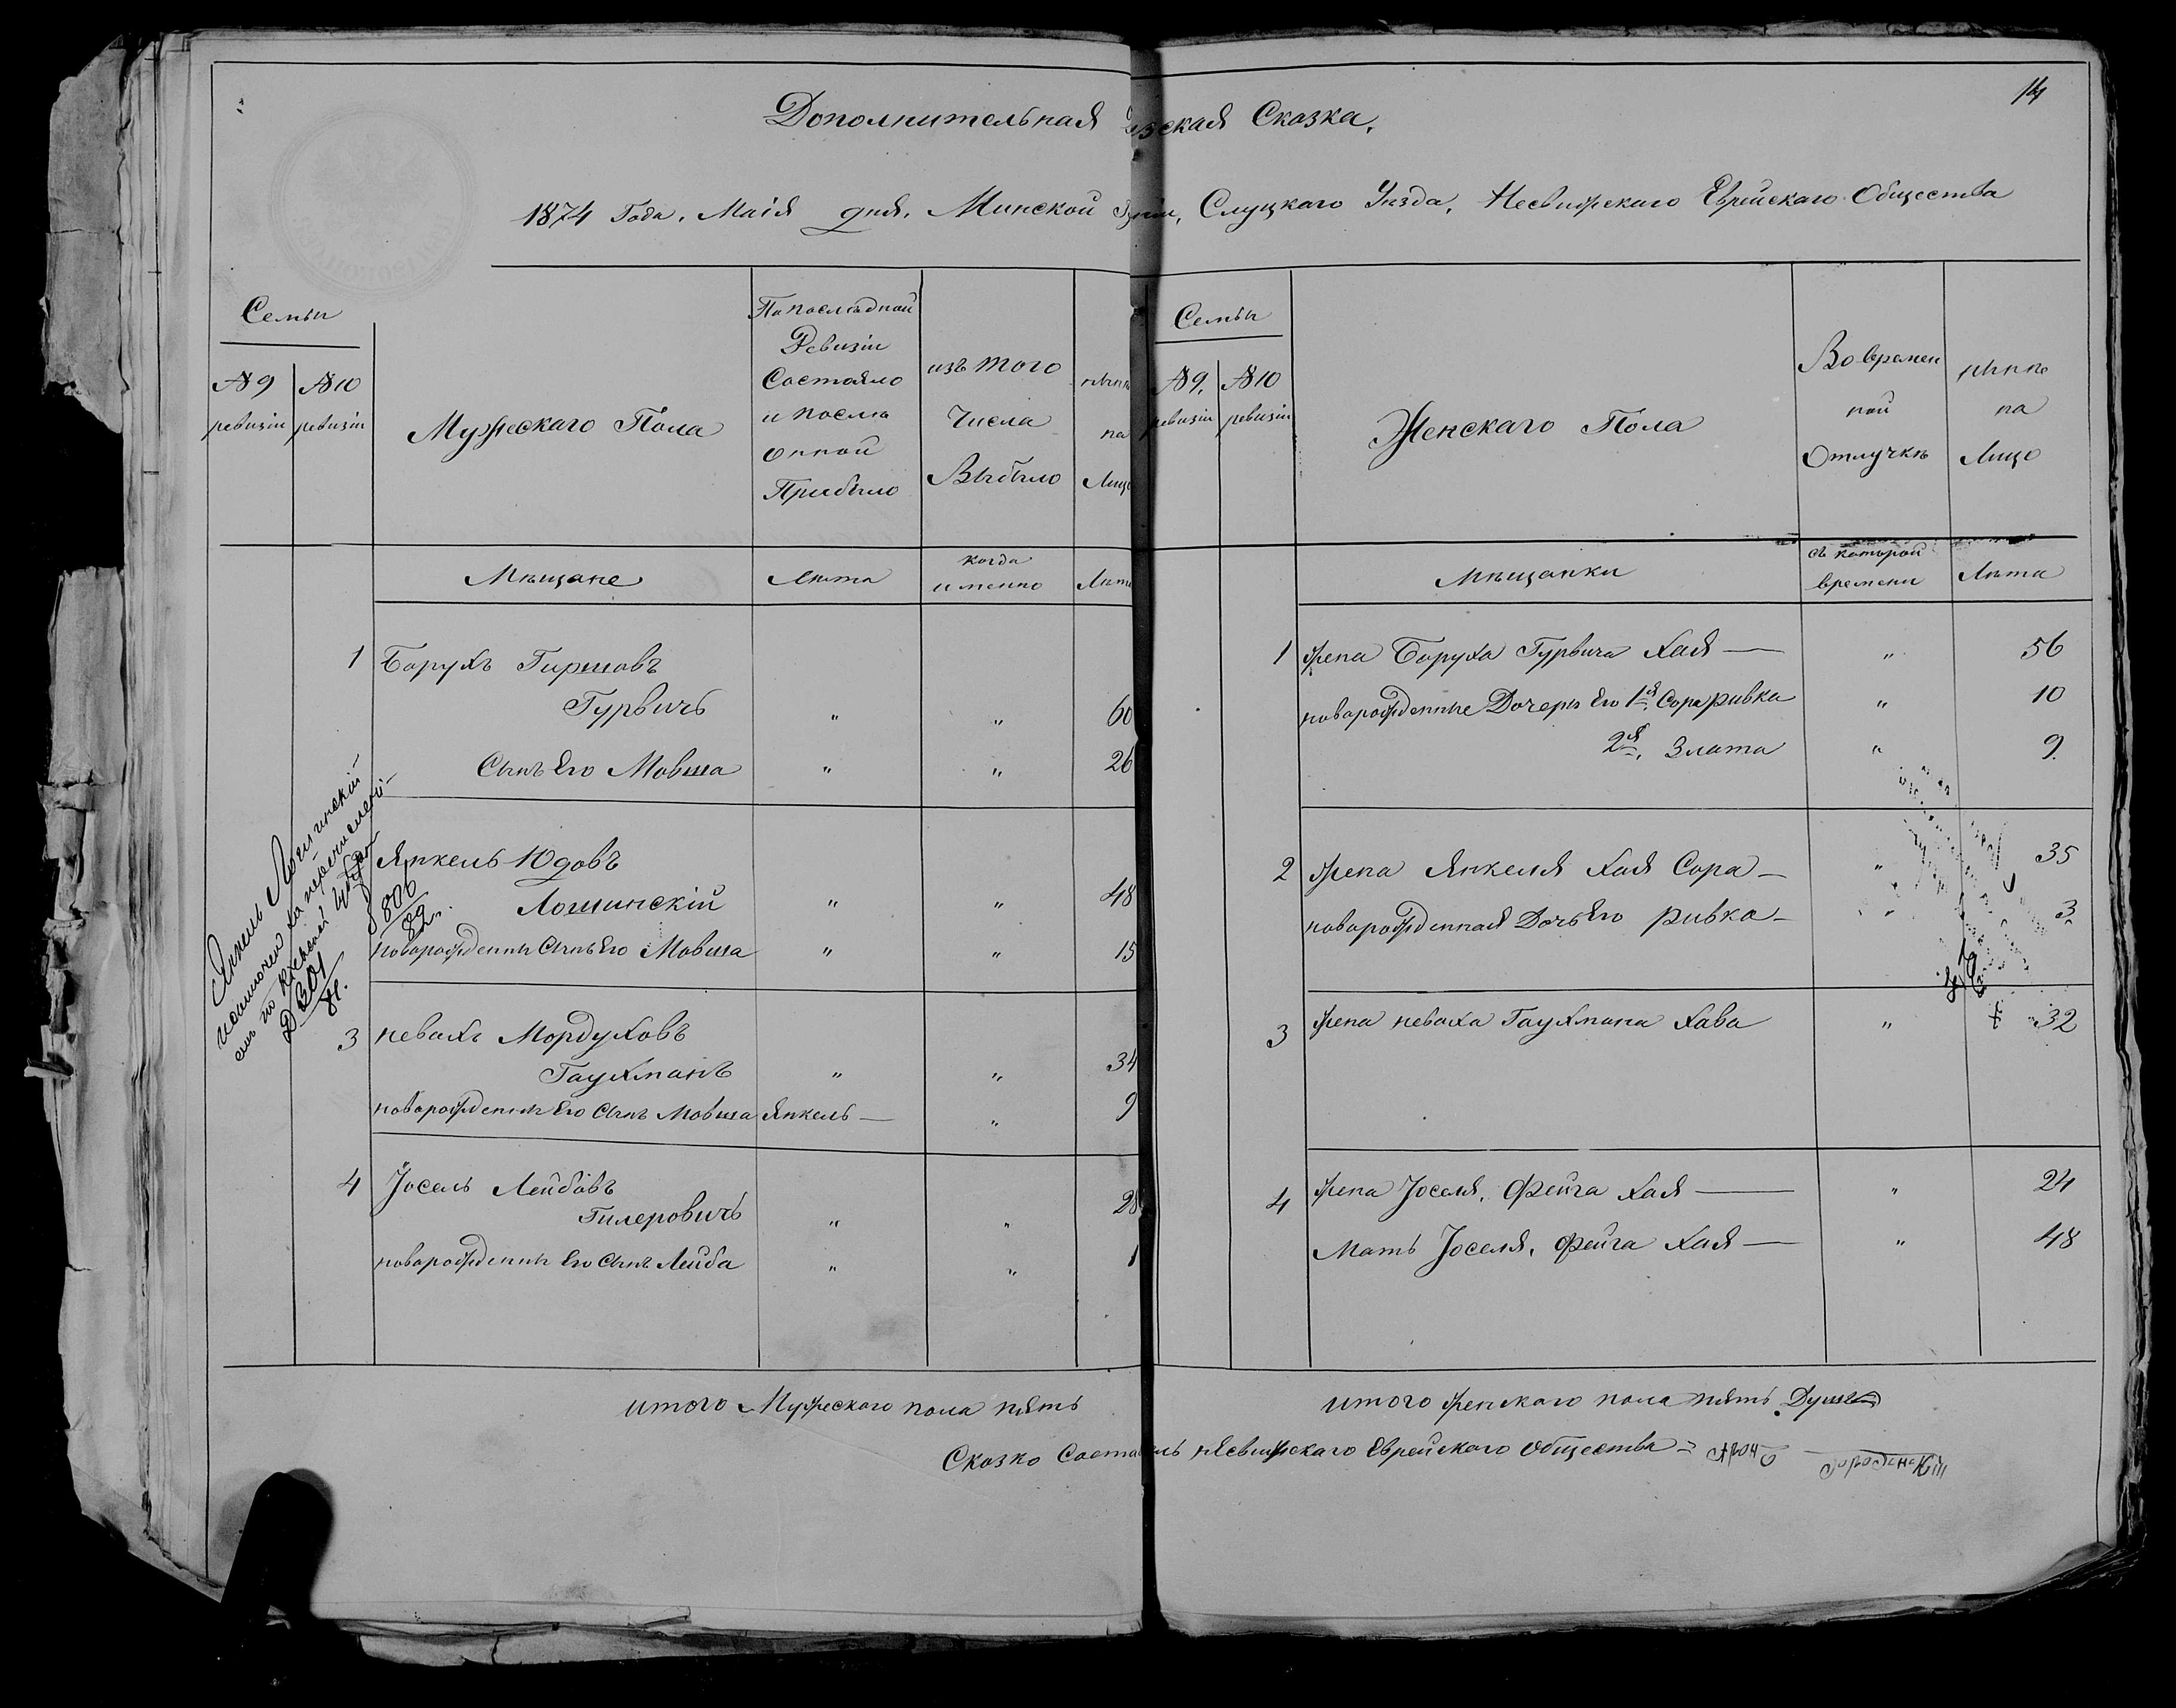 14
Дополнительная ская Сказка.
1874 Года, Маія дня, Минской Губніи, Слуцкаго Уѣзда, Несвижскаго Еврейскаго Общества
Семьи
№ 9 ревизіи
№ 10 ревизіи
Мужескаго Пола
По послѣдной
Ревизіи
Состояло
и послѣ
онной
Прибыло
изъ того
Числа
Выбыло
нынѣ
на
Лицо
Мѣщане
Лѣта
когда
именно
Лѣта
1 Борухъ Гиршовъ
Гурвичъ " " 60
Сынъ Его Мовша " " 26
Янкель Юдовъ
Лошинскій " " 48
новорожденны Сынъ Его Мовша " " 15
3 певахъ Мордуховъ
Гаухманъ " " 34
новорожденны Его Сынъ Мовша Янкель — " 9
4 Іосель Лейбовъ
Гилеровичъ " " 28
новорожденны Его Сынъ Лейба " " 1
Янкель Лошинскій
по
Д 301
81.
806
82.
итого Мужескаго пола пять
Семьи
№ 9, ревизіи
№ 10 ревизіи
Женскаго Пола
Во времен
ной
Отлучкѣ
нынѣ
на
Лицо
Мѣщанки
съ которой
времени
Лѣта
1 жена Боруха Гурвича Хая — " 56
новорожденные Дочеры Его 1я Сора ривка " 10
2я, Злата " 9.
2 жена Янкеля Хая Сора — " 35
новорожденная Дочь Его ривка — " 3
3 жена певаха Гаухмана Хава " 32
4 жена Іоселя, Фейга Хая — " 24
Мать Іоселя, Фейга Хая — " 48
итого женскаго пола пять Душъ
Сказко Составилъ нѣсвижскаго Еврейскаго Общества